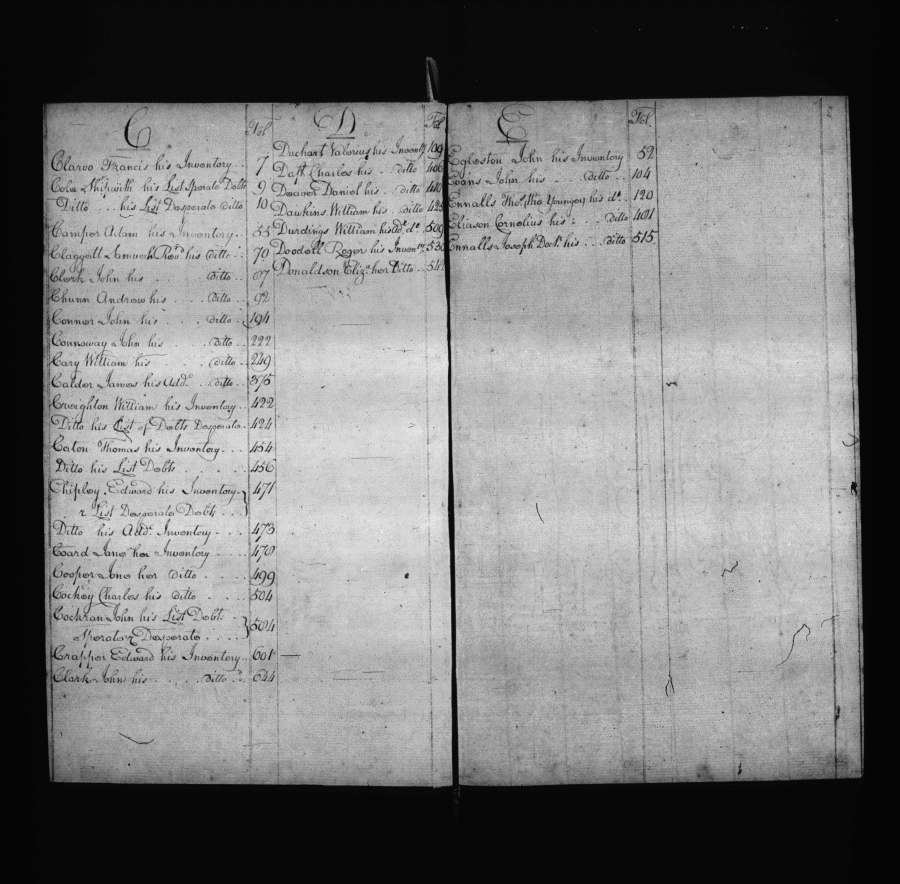 C
Fol
Clarvo Francis his Inventory .. 7
Cole Skipwith his List Sperate Debts 9
Ditto .... his List Desperate ditto 10
Camper Adam his Inventory .. 55
Claggett Samuel Revd his ditto .. 70
Clark John his .... ditto ..
Chunn Andrew his .... ditto .. 92
Connor John his .... ditto .. 194
Connoway John his .... ditto .. 222
Cary William his .... ditto .. 249
Calder James his Addl .. ditto .. 375
Creighton William his Inventory .. 422
Ditto his List of Debts Desperate .. 424
Caton Thomas his Inventory ... 454
Ditto his List Debts ..... 456
Chipley Edward his Inventory } 471
& List Desperate Debts ...
Ditto his Addl Inventory .... 473
Coard Jane her Inventory .... 478
Cooper Jone her ditto .... 499
Cockey Charles his ditto .... 504
Cochran John his List Debts } 504
Sperate & Desperate ....
Crapper Edward his Inventory .. 601
Clark John his .... ditto .. 644
D
Fol
Duchart Valerius his Inventy 109
Daft Charles his .. ditto 406
Deaver Daniel his .. ditto 410
Dawkins William his .. ditto 425
Durdings William his Ad. do. 509
Doodell Roger his Inventy. 530
Donaldson Eliza. her Ditto .. 54
E
Fol.
Egleston John his Inventory 52
Evans John his .. ditto .. 104
Ennalls Thos. (the Younger) his do. 120
Eliason Cornelius his .. ditto 401
Ennalls Joseph Doctr. his .. ditto 515